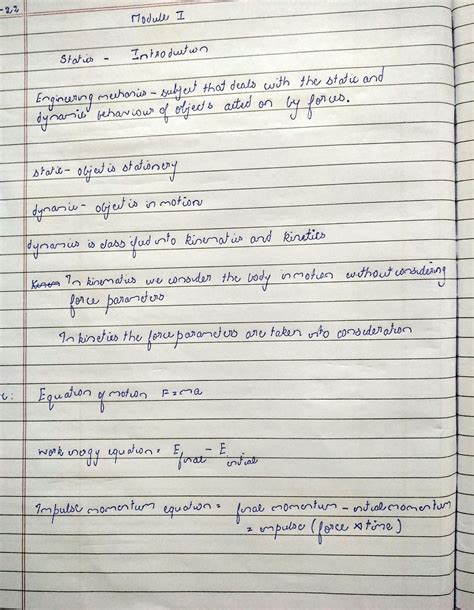 -22
Module I
Statics - Introduction
Engineering mechanics - subject that deals with the static and
dynamic behaviour of objects acted on by forces.
static - object is stationery
dynamic - object is in motion
dynamics is classified into kinematics and kinetics
In kinematics we consider the body in motion without considering
force parameters
In kinetics the force parameters are taken into consideration
Equation of motion F=ma
work energy equation = E final - E initial
Impulse momentum equation = final momentum - initial momentum
= impulse (force × time)